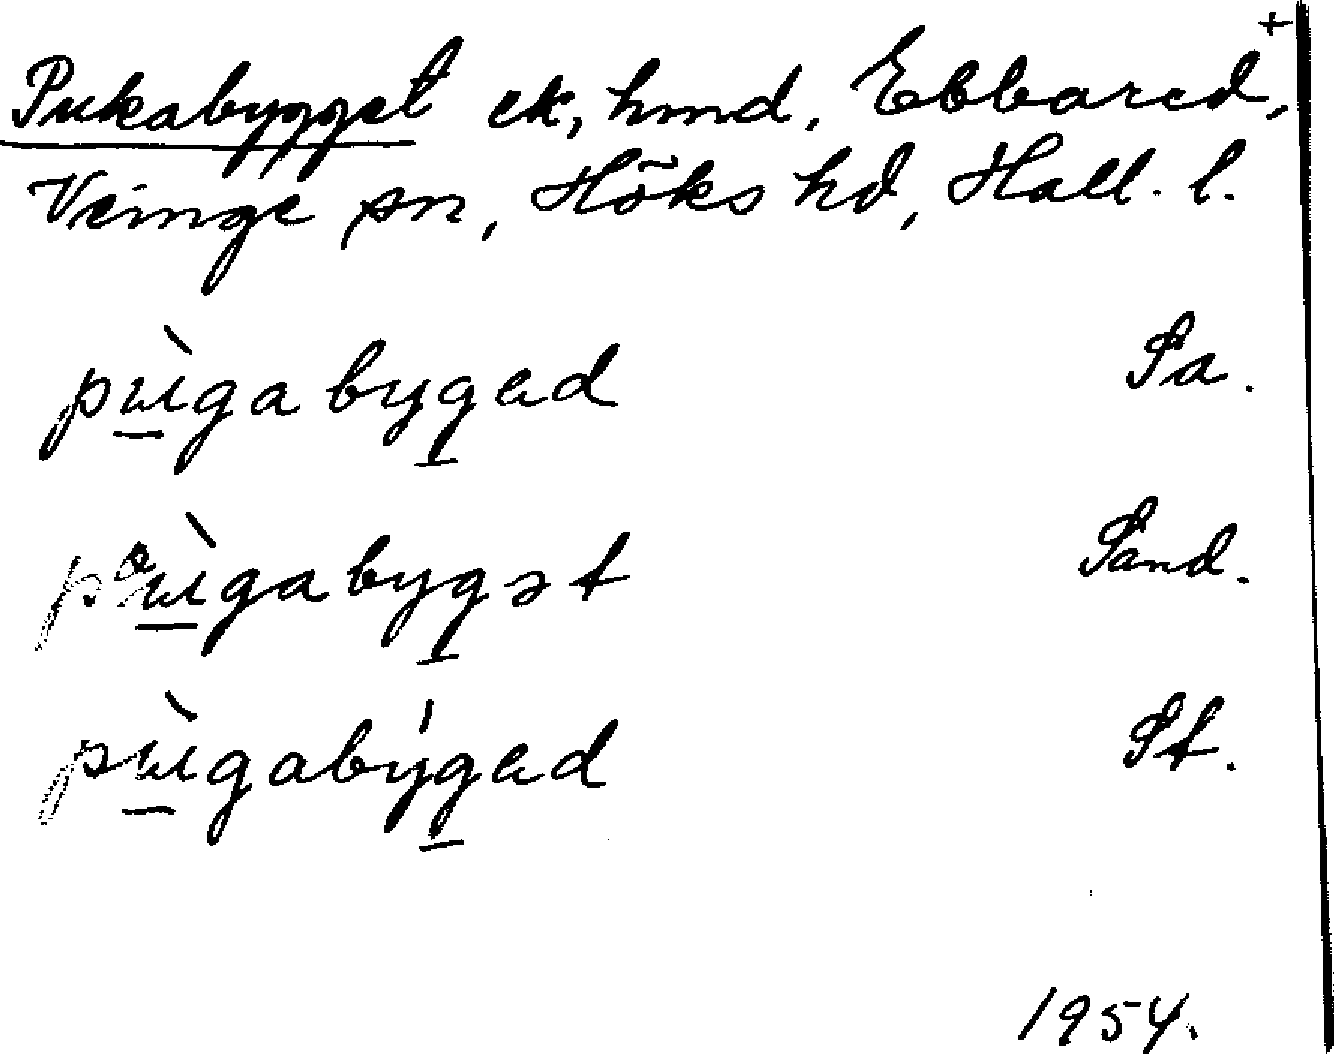 +
Pukabygget ek, hmd, Ebbared,
Veinge sn, Höks hd, Hall. l.
pùgabygad Sa.
pᵒùgabygət Sand.
pùgabýgad St.
1954.